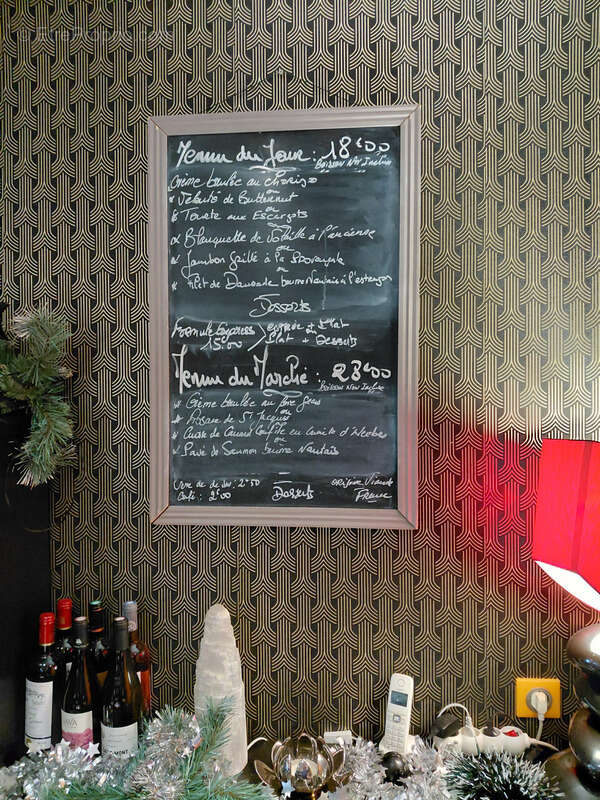 © PrivéePhotos.com
Menu du Jour : 18€00
Boisson Non Inclus
Crème brulée au chorizo
ou
* Velouté de Butternut
ou
* Tourte aux Escargots
* Blanquette de Volaille à l'ancienne
ou
* Jambon Grillé à la Provençale
ou
* Filet de Daurade beurre Nantais à l'estragon
Desserts
Formule Express
15.00
entrée et Plat
Plat + Desserts
Menu du Marché : 28€00
Boisson Non Inclus
* Crème brulée au foie Gras
ou
* de St Jacques
* Cuisse de Canard Confite en
ou
* Pavé de Saumon beurre Nantais
Verre de : 2€50
Café : 2€00
Desserts
origine Viande
France